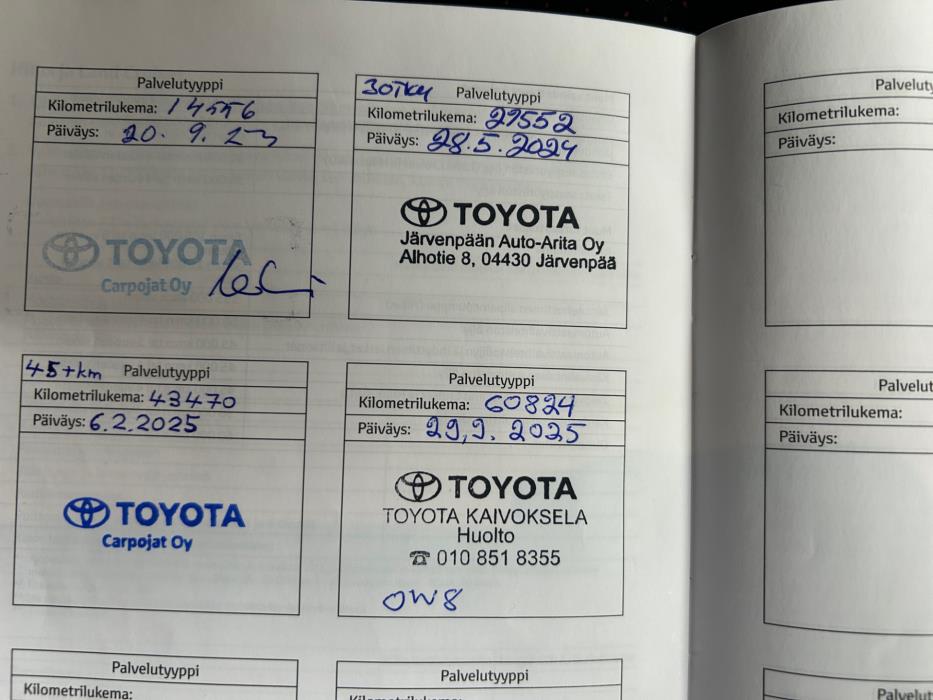 Palvelutyyppi
Kilometrilukema: 14556
Päiväys: 20. 9. 23
TOYOTA
Carpojat Oy
30TKM Palvelutyyppi
Kilometrilukema: 29552
Päiväys: 28.5.2024
TOYOTA
Järvenpään Auto-Arita Oy
Alhotie 8, 04430 Järvenpää
45tkm Palvelutyyppi
Kilometrilukema: 43470
Päiväys: 6.2.2025
TOYOTA
Carpojat Oy
Palvelutyyppi
Kilometrilukema: 60824
Päiväys: 29,9. 2025
TOYOTA
TOYOTA KAIVOKSELA
Huolto
☎ 010 851 8355
OW8
Palvelutyyppi
Kilometrilukema:
Palvelutyyppi
Kilometrilukema:
Palvelutyy
Kilometrilukema:
Päiväys:
Palvelut
Kilometrilukema:
Päiväys:
Palvelut